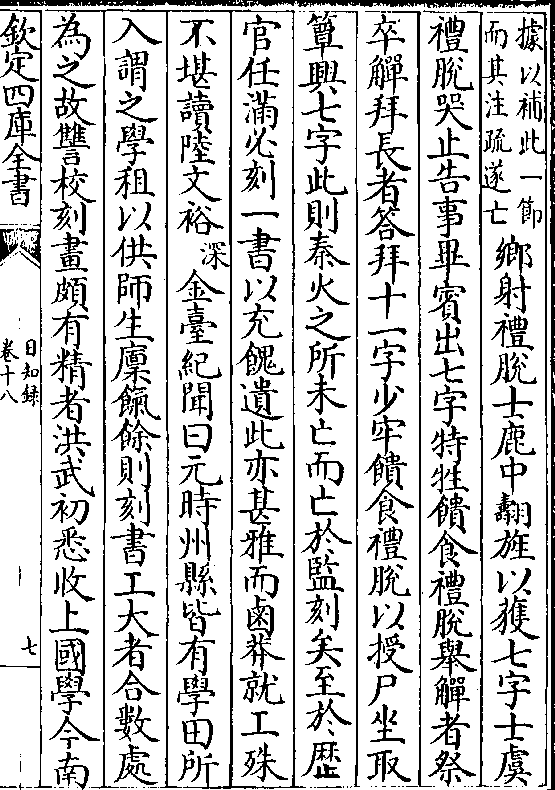 據以補此一節
而其注疏遂亡
鄉射禮脫士鹿中翿旌以獲七字士虞
禮脫哭止告事畢賔出七字特牲饋食禮脫舉觶者祭
卒觶拜長者答拜十一字少牢饋食禮脫以授尸坐取
簞興七字此則秦火之所未亡而亡於監刻矣至於歷
官任滿必刻一書以充餽遺此亦甚雅而鹵莽就工殊
不堪讀陸文裕深金臺紀聞曰元時州縣皆有學田所
入謂之學租以供師生廩餼餘則刻書工大者合數處
為之故讐校刻畫頗有精者洪武初悉收上國學今南
欽定四庫全書
日知錄
卷十八
七